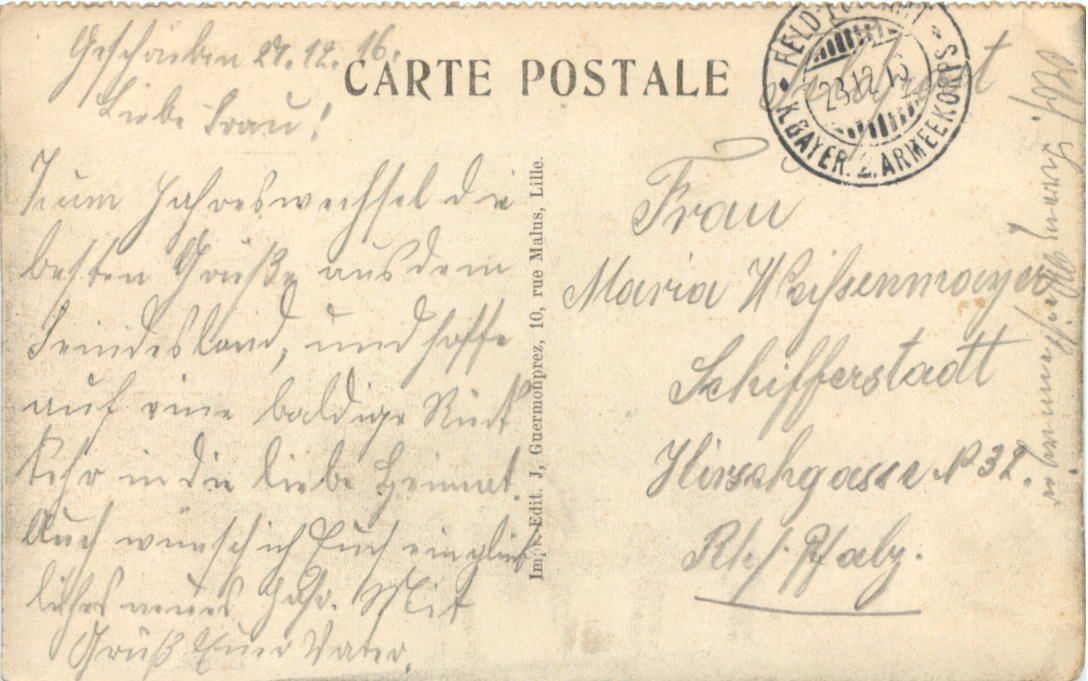 Geschrieben 27.12.16.
Liebe Frau!
Zum Jahreswechsel die
besten Grüße aus dem
Feindesland, und hoffe
auf eine baldige Rück
kehr in die liebe Heimat.
Auch wünsch ich Euch ein glück
liches neues Jahr. Mit
Gruß Euer Vater.
CARTE POSTALE
Impr.-Edit. J, Guermonprez, 10, rue Malus, Lille.
Feldpost
29.12.16
K. BAYER. 2. ARMEEKORPS
Frau
Maria Weissenmayer
Schifferstadt
Hirschgasse No 32.
Rh/Pfalz.
Weissenmayer